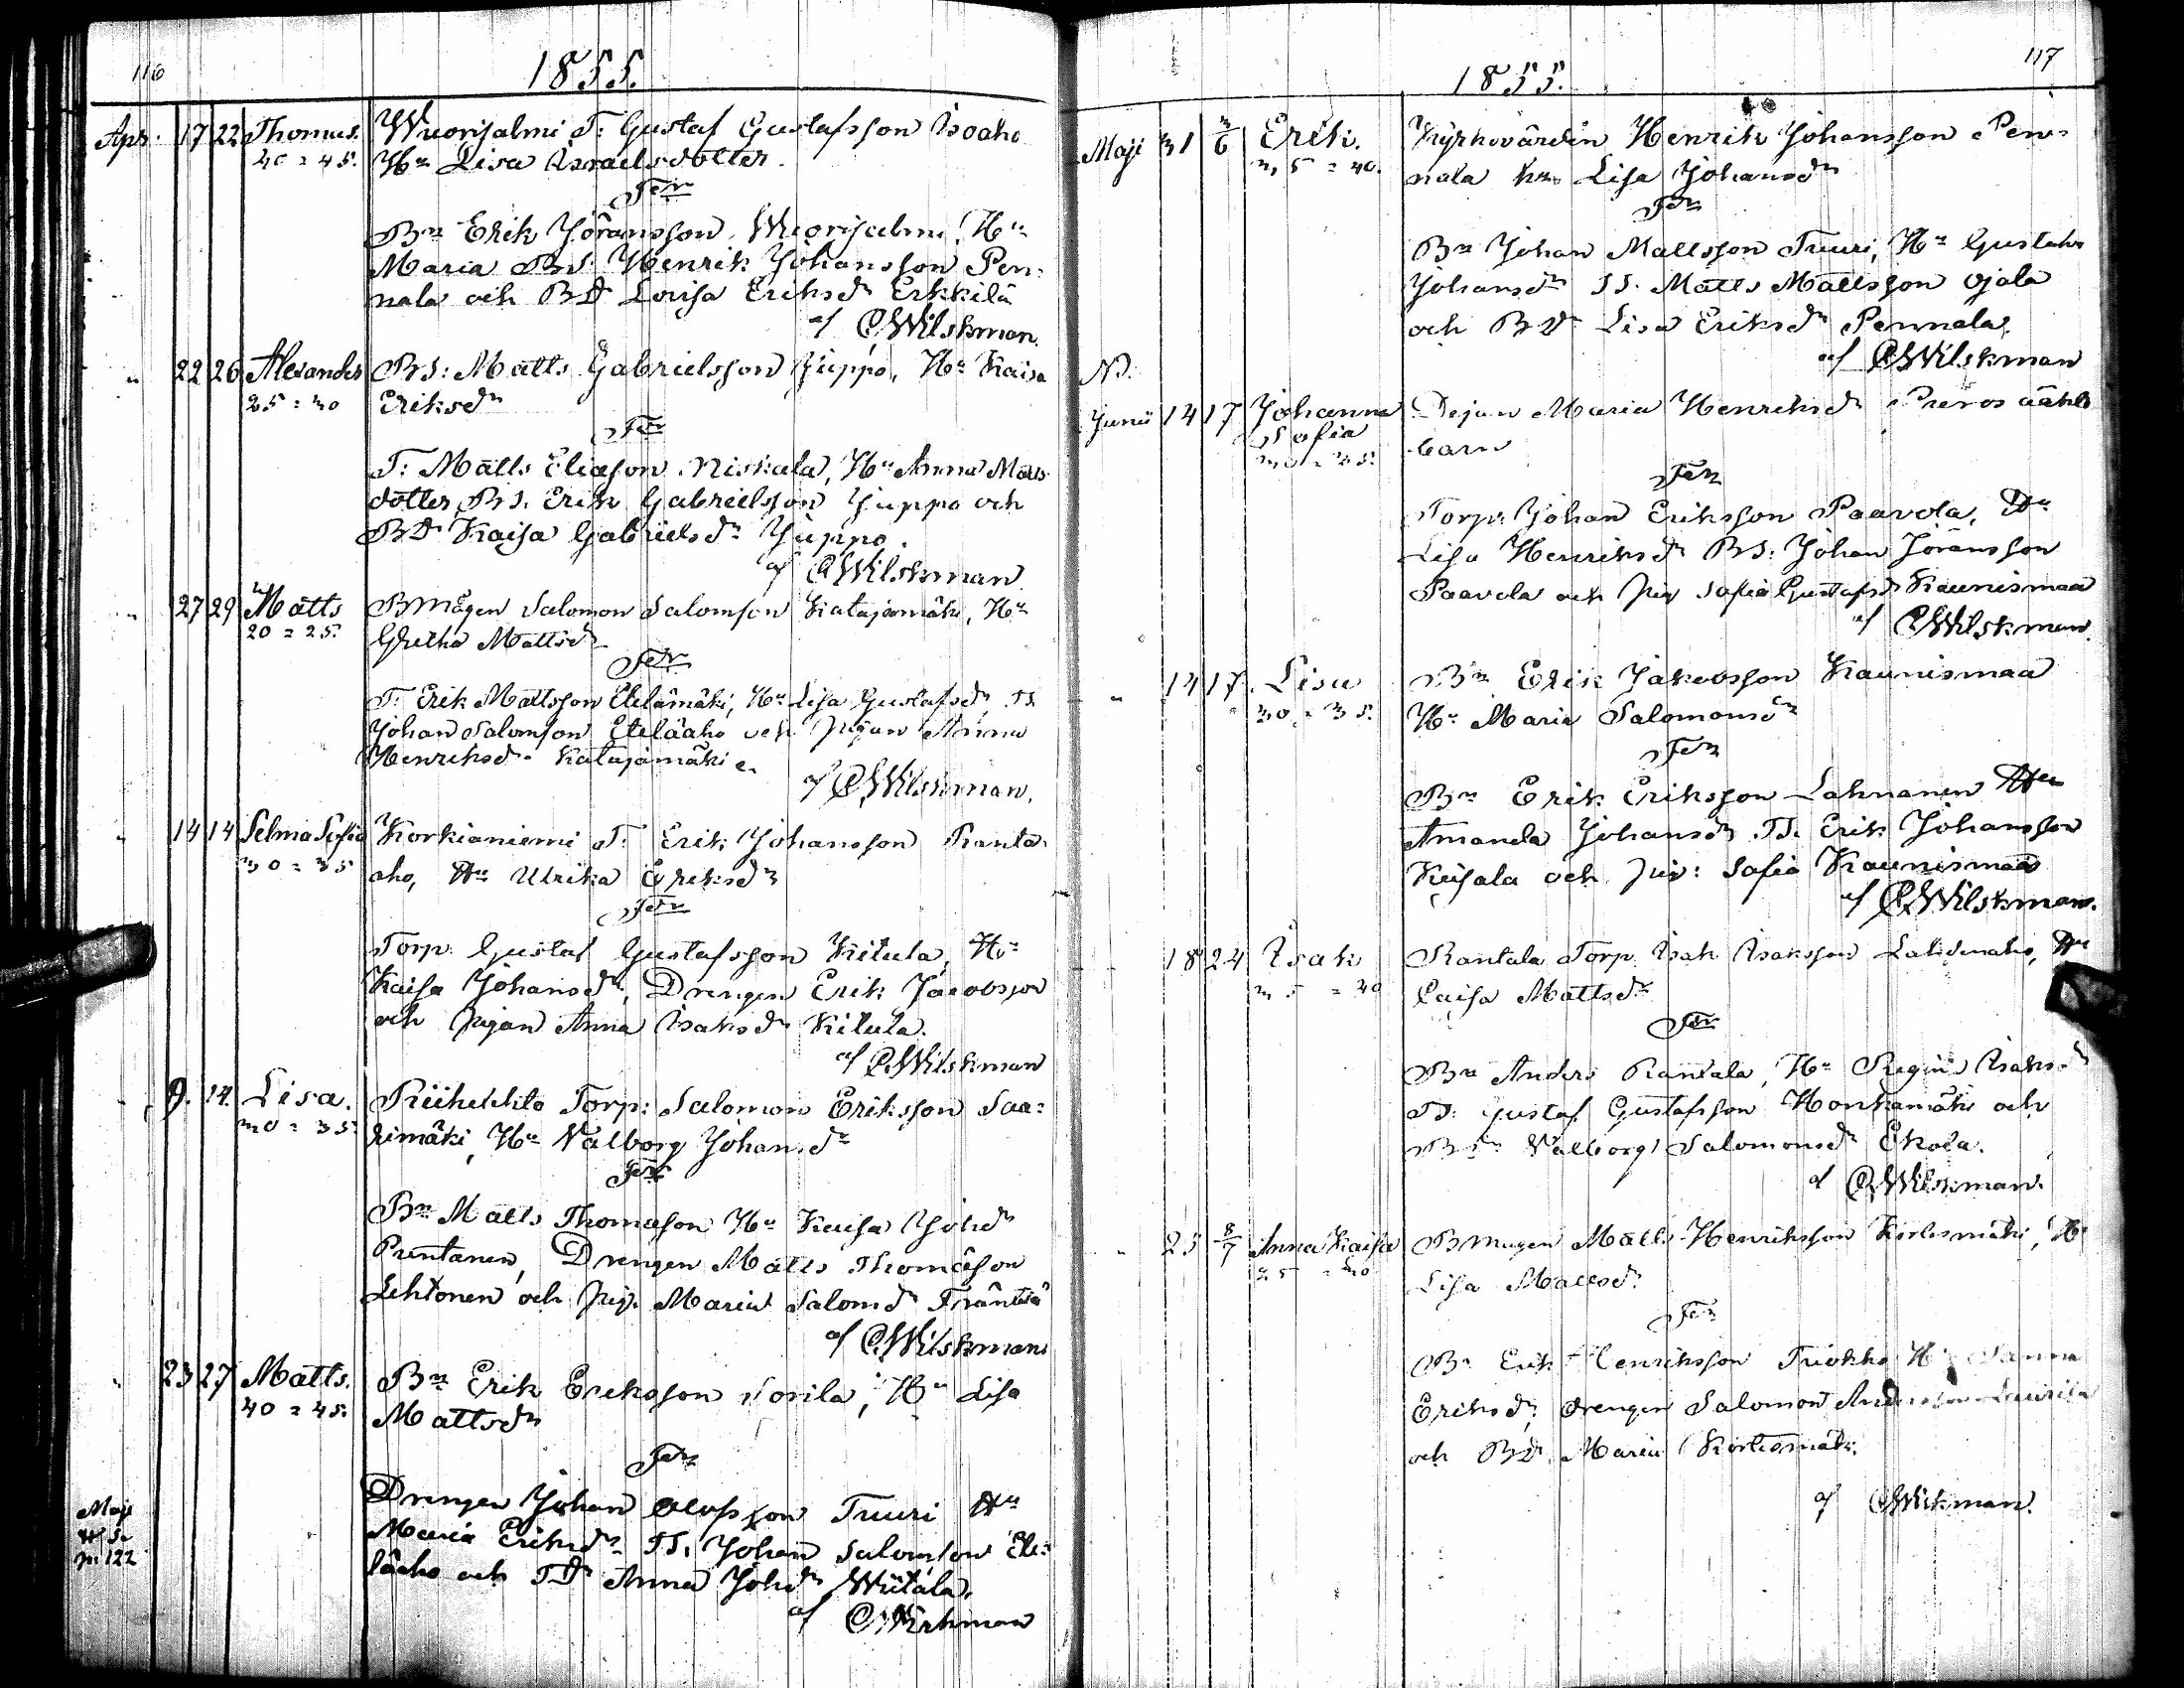 116
1855.
Apr. 17 22 Thomas. Wuorijalmi T: Gustaf Gustafsson Isoaho
40 = 45. Hu Lisa Israelsdotter.
Fdr
Bn Erik Jöransson Wuorijalmi, Hu
Maria BS. Henrik Johansson Pen=
nala och BD Lovisa Eriksdr Erkkilä
af CWilskman.
" 22 26 Alexander BS: Matts Gabrielsson Juppo, Hu Kaisa
25 = 30 Eriksdr
Fdr
T: Matts Eliasson Niskala, Hu Anna Matts
dotter, BS. Erik Gabrielsson Juppo och
BD Kaisa Gabrielsdr Juppo.
af CWilskman
" 27 29 Matts Bmågen Salomon Salomsson Katajamäki, Hu
20 = 25. Gretha Mattsdr
Fdr
T. Erik Mattsson Etelämäki, Hu Lisa Gustafsdr, TS.
Johan Salomsson Eteläaho och Pigan Anna
Henriksdr Katajamäki
af CWilskman.
" 14 14 Selma Sofia Korkianiemi T: Erik Johansson Ranta=
30 = 35 aho, Hu Ulrika Eriksdr
Fdr
Torp. Gustaf Gustafsson Kitula, Hu
Kaisa Johansdr, Drengen Erik Jacobsson
och Pigan Anna Isaksdr Kitula.
af CWilskman
" 9. 14. Lisa. Torp: Salomon Eriksson Saa=
30 = 35 rimäki, Hu Valborg Johansdr
Fdr
Bn Matts Thomasson Hu Kaisa Johdr
Puntanen, Drengen Matts Thomasson
Lehtonen och Pig. Maria Salomdr Fräntilä
af CWilskman
" 23 27 Matts. Bn Erik Eriksson Sorila, Hu Lisa
40 = 45. Mattsdr
Fdr
Drengen Johan Olofsson Tuuri Hu
Maria Eriksdr TS. Johan Salomsson Ete=
läaho och TD Anna Johdr Wiitala.
af CWilskman
Maji
p. 122
117
1855.
Maji 31 3/6 Erik. Kyrkovärden Henrik Johansson Pen=
35 = 40. nala hu Lisa Johansdr
Fdr
Bn Johan Mattsson Tuuri, Hu Gustava
Johansdr TS. Matts Mattsson Ojala
och BD Lisa Eriksdr Pennala.
af CWilskman
Junii 14 17 Johanna Pejan Maria Henriksdr oäkta
Sofia barn
30 = 35.
Fdr
Torp: Johan Eriksson Paavola, Hu
Lisa Henriksdr BS: Johan Jöransson
Paavola och Pig Sofia Gustafsdr Kaunismaa
af CWilskman.
" 14 17. Lisa Bn Erik Jakobsson Kaunismaa
30 = 35. Hu Maria Salomonsdr
Fdr
Bn Erik Eriksson Lahnanen Hu
Amanda Johansdr TS. Erik Johansson
Keisala och Pig: Sofia Kaunismaa
af CWilskman.
" 18 24 Isak Rantala Torp. Isak Isaksson Hu
35 = 40 Caisa Mattsdr
Fdr
Bn Anders Rantala, Hu Regina Isaksdr
TS: Gustaf Gustafsson Honkamäki och
Valborg Salomonsdr Ekola.
af CWilskman.
" 25 8/7 Anna Kaisa Bmågen Matts Henriksson Kortesmäki, Hu
25 = 30 Lisa Mattsdr
Fdr
Bn Erik Henriksson Hu Sanna
Eriksdr, Drengen Salomon Andersson Laurila
och BD. Maria Kortesmäki.
af CWilskman.